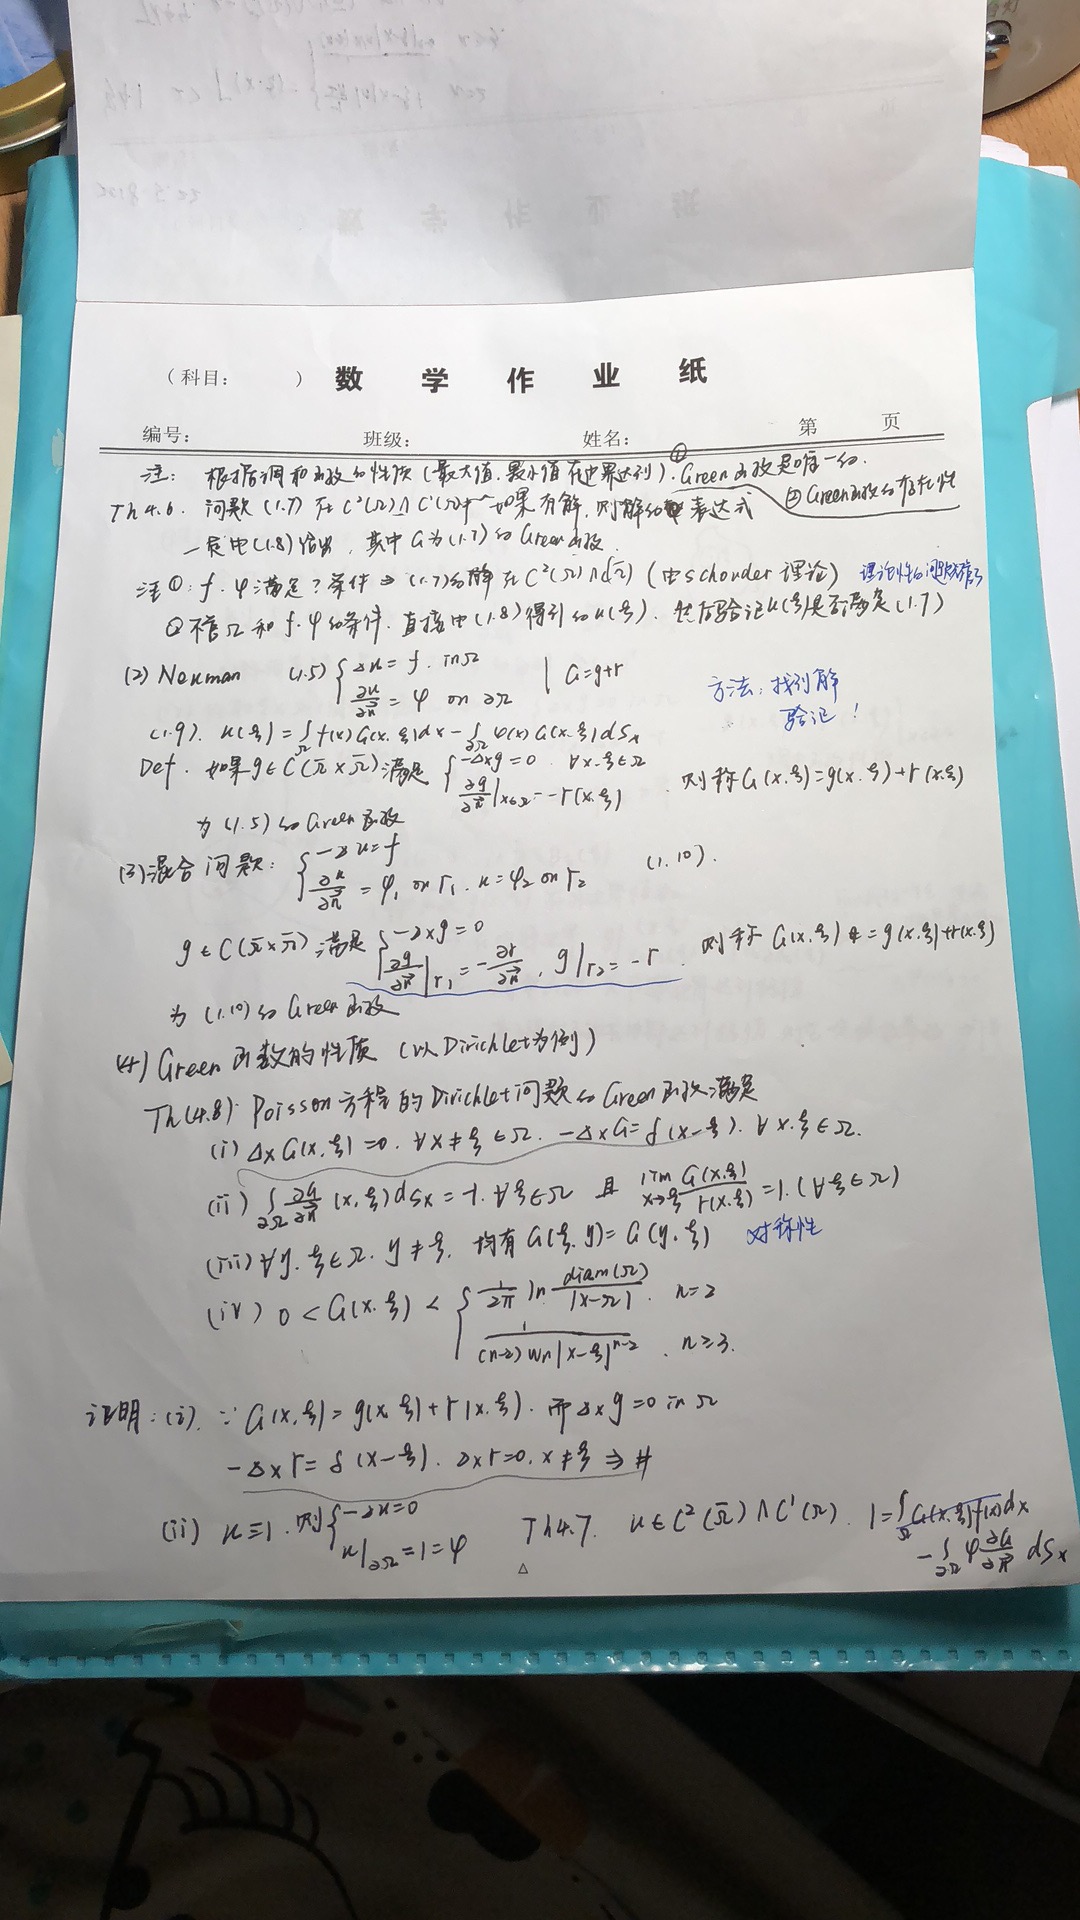 （科目： ） 数 学 作 业 纸
编号： 班级： 姓名： 第 页
注： 根据调和函数的性质（最大值.最小值在边界达到）. ① Green函数是唯一的. ② Green函数的存在性
Th4.6. 问题(1.7)在C²(Ω)∩C¹(Ω̄)中如果有解,则解的表达式
一定由(1.8)给出, 其中G为(1.7)的Green函数.
注①: f. φ满足?条件 ⇒ (1.7)的解在C²(Ω)∩C¹(Ω̄) (由schouder理论)
②不管Ω和f.φ的条件.直接由(1.8)得到的u(ξ). 然后验证u(ξ)是否满足(1.7)
(2) Neuman (1.5) { -Δu = f. in Ω | G=g+r
∂u/∂n⃗ = φ on ∂Ω
方法: 找到解
验证!
(1.9). u(ξ) = ∫_Ω f(x)G(x.ξ)dx - ∫_∂Ω φ(x)G(x.ξ)dSx
Def. 如果g∈C(Ω̄×Ω̄)满足 { -Δxg=0 ∀x.ξ∈Ω
∂g/∂n⃗|x∈Ω = -r(x.ξ) . 则称G(x.ξ)=g(x.ξ)+r(x.ξ)
为(1.5)的Green函数
(3)混合问题: { -Δu=f
∂u/∂n⃗ = φ₁ on Γ₁. u=φ₂ on Γ₂ (1.10).
g∈C(Ω̄×Ω̄)满足 { -Δxg=0
∂g/∂n⃗|Γ₁ = -∂r/∂n⃗ , g|Γ₂ = -r . 则称 G(x.ξ)=g(x.ξ)+r(x.ξ)
为(1.10)的Green函数
(4) Green函数的性质 (以Dirichlet为例)
Th(4.8). Poisson方程的Dirichlet问题的Green函数满足
(i) ΔxG(x.ξ)=0. ∀x≠ξ∈Ω. -ΔxG=δ(x-ξ). ∀x.ξ∈Ω.
(ii) ∫_∂Ω ∂G/∂n⃗ (x,ξ)dSx=-1.∀ξ∈Ω 且 lim x→ξ G(x.ξ)/r(x.ξ) =1. (∀ξ∈Ω)
(iii) ∀y.ξ∈Ω. y≠ξ. 均有G(ξ.y)=G(y.ξ) 对称性
(iv) 0<G(x.ξ)< { 1/2π ln diam(Ω)/|x-Ω| . n=2
1/(n-2)Wn|x-ξ|ⁿ⁻² . n≥3.
证明: (i). ∵ G(x.ξ)=g(x.ξ)+r(x.ξ). 而Δxg=0 in Ω
-Δxr=δ(x-ξ). Δxr=0. x≠ξ ⇒ #
(ii) u≡1. 则 { -Δu=0
u|∂Ω=1=φ
Th4.7. u∈C²(Ω̄)∩C¹(Ω). 1=∫_Ω G(x.ξ)f(x)dx
-∫_∂Ω φ ∂G/∂n⃗ dSx